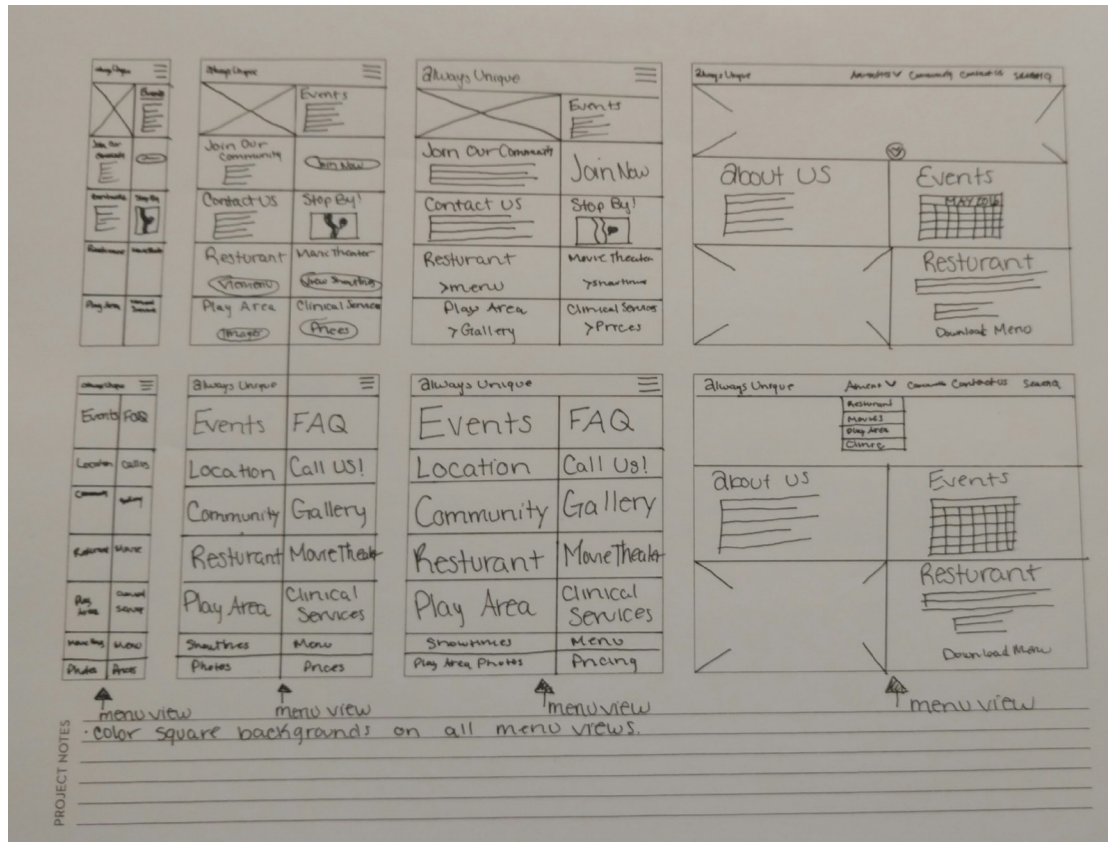 always Unique
Events
Join Our
always Unique
Events
Join Our
Community
Join Now
Contact US
Stop By!
Resturant
Movie Theater
Play Area
Clinical Services
Prices
always Unique
Events
Join Our Community
Join Now
Contact US
Stop By!
Resturant
Movie Theater
>menu
>showtimes
Play Area
Clinical Services
>Gallery
>Prices
always Unique
Community
Contact US
Search
about US
Events
MAY 2016
Resturant
Download Menu
always Unique
Events
FAQ
Location
Call us
Community
Gallery
Movie
Play
Area
Menu
Photos
Prices
always Unique
Events
FAQ
Location
Call US!
Community
Gallery
Resturant
Movie Theater
Play Area
Clinical
Services
Showtimes
Menu
Photos
Prices
always Unique
Events
FAQ
Location
Call Us!
Community
Gallery
Resturant
Movie Theater
Play Area
Clinical
Services
Showtimes
Menu
Play Area Photos
Pricing
always Unique
Contact US
Search
Resturant
Movies
Play Area
Clinic
about US
Events
Resturant
Download Menu
menu view
menu view
menu view
menu view
PROJECT NOTES
· color square backgrands on all menu views.